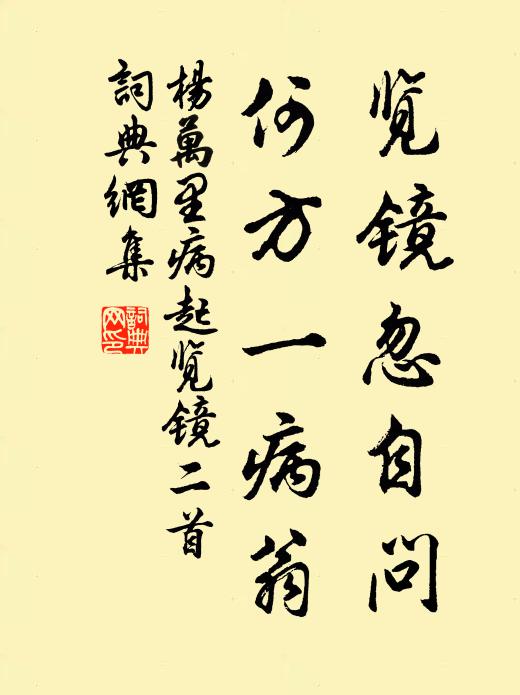 览镜忽自问
何方一病翁
杨萬里病起览镜二首
詞典網集
詞典网印